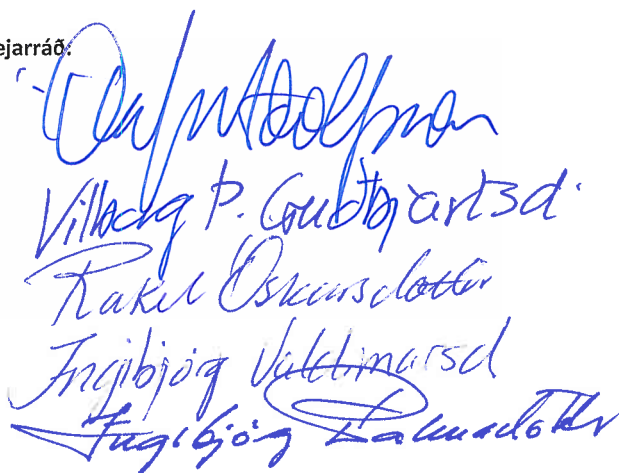 ejarráð:
Ólafur Adolfsson
Vilborg Þ. Guðbjartsd.
Rakel Óskarsdóttir
Ingibjörg Valdimarsd
Ingibjörg Pálmadóttir